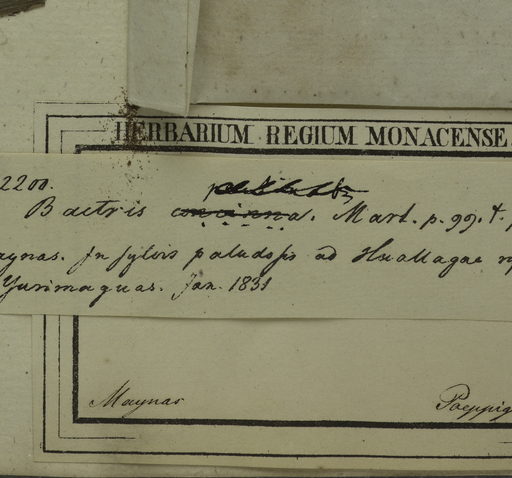 HERBARIUM REGIUM MONACENSE.
2200.
Bactris concinna. Mart. p. 99. t.
aynas. In sylvis paludosis ad Huallagae
Yurimaguas. Jan. 1831
Maynas Poeppig